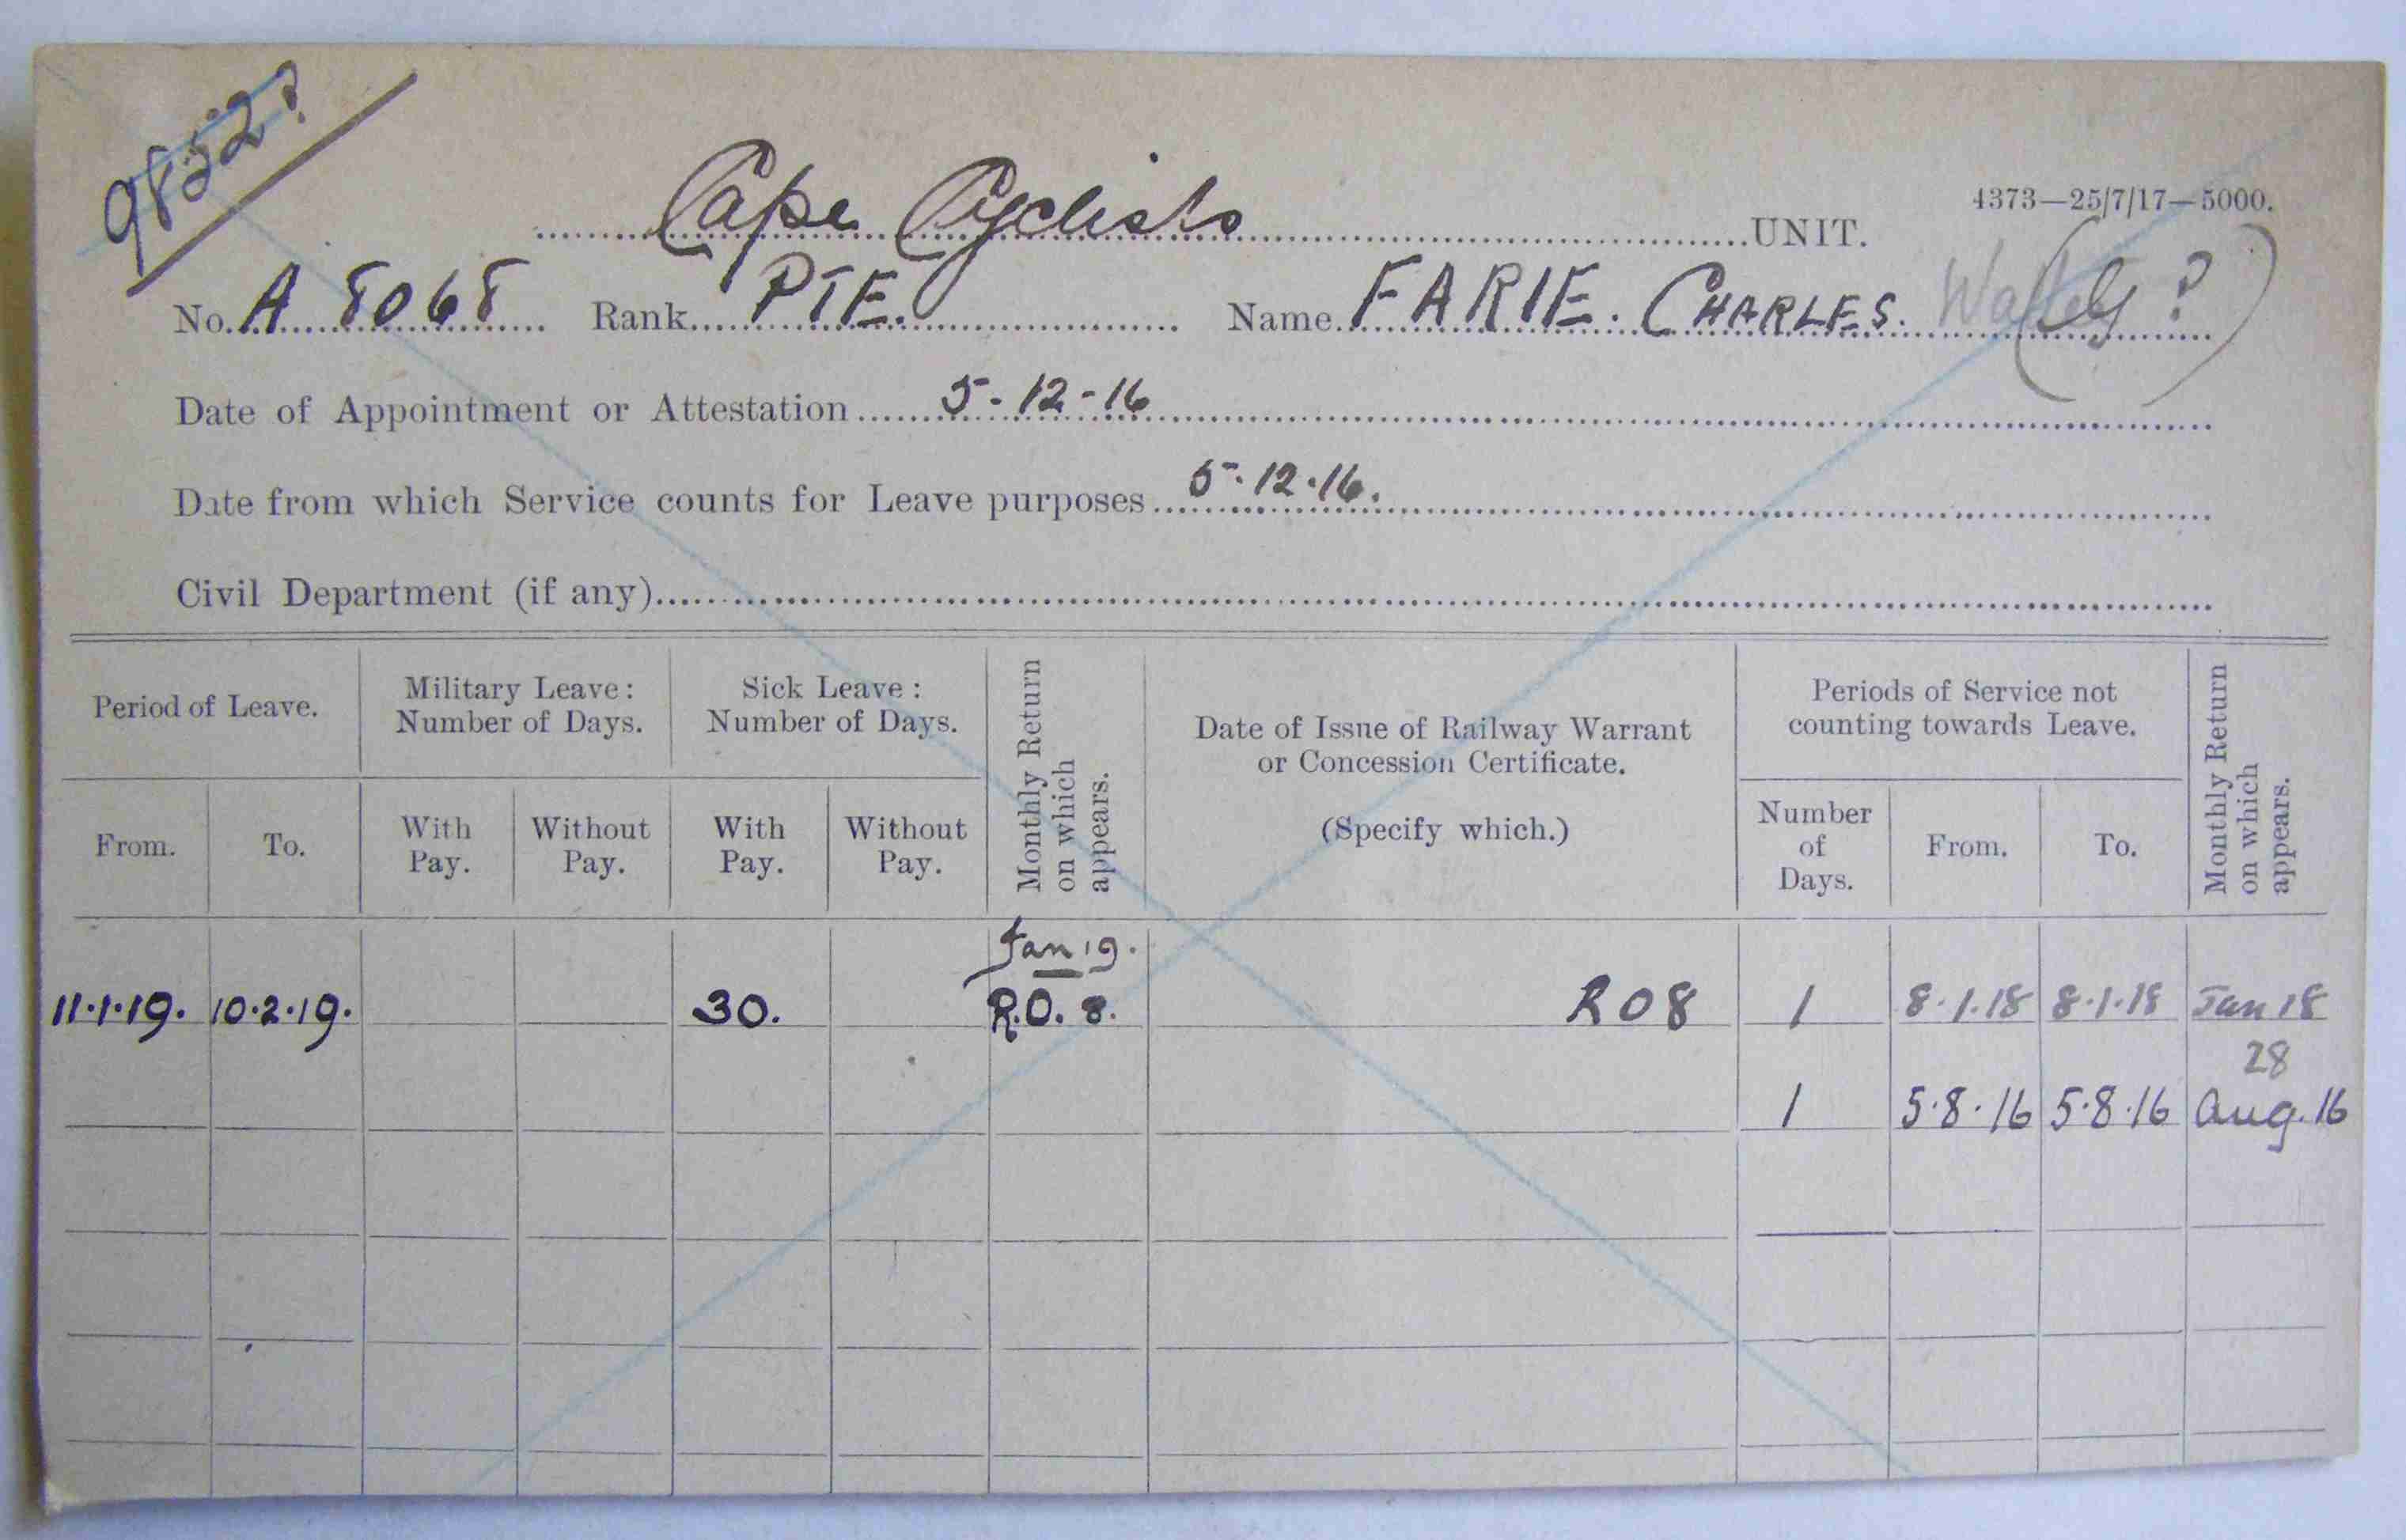 9852?
Cape Cyclists UNIT.
4373—25/7/17—5000.
No. A 8068 Rank PTE. Name FARIE. CHARLES. (G?)
Date of Appointment or Attestation 5-12-16
Date from which Service counts for Leave purposes 5.12.16.
Civil Department (if any)
Period of Leave.
Military Leave:
Number of Days.
Sick Leave:
Number of Days.
Monthly Return
on which
appears.
Date of Issue of Railway Warrant
or Concession Certificate.
(Specify which.)
Periods of Service not
counting towards Leave.
Monthly Return
on which
appears.
From. To.
With
Pay.
Without
Pay.
With
Pay.
Without
Pay.
Number
of
Days.
From. To.
Jan 19.
11.1.19. 10.2.19. 30. R.O. 8. R08 1 8.1.18 8.1.18 Jan 18
28
1 5.8.16 5.8.16 Aug. 16